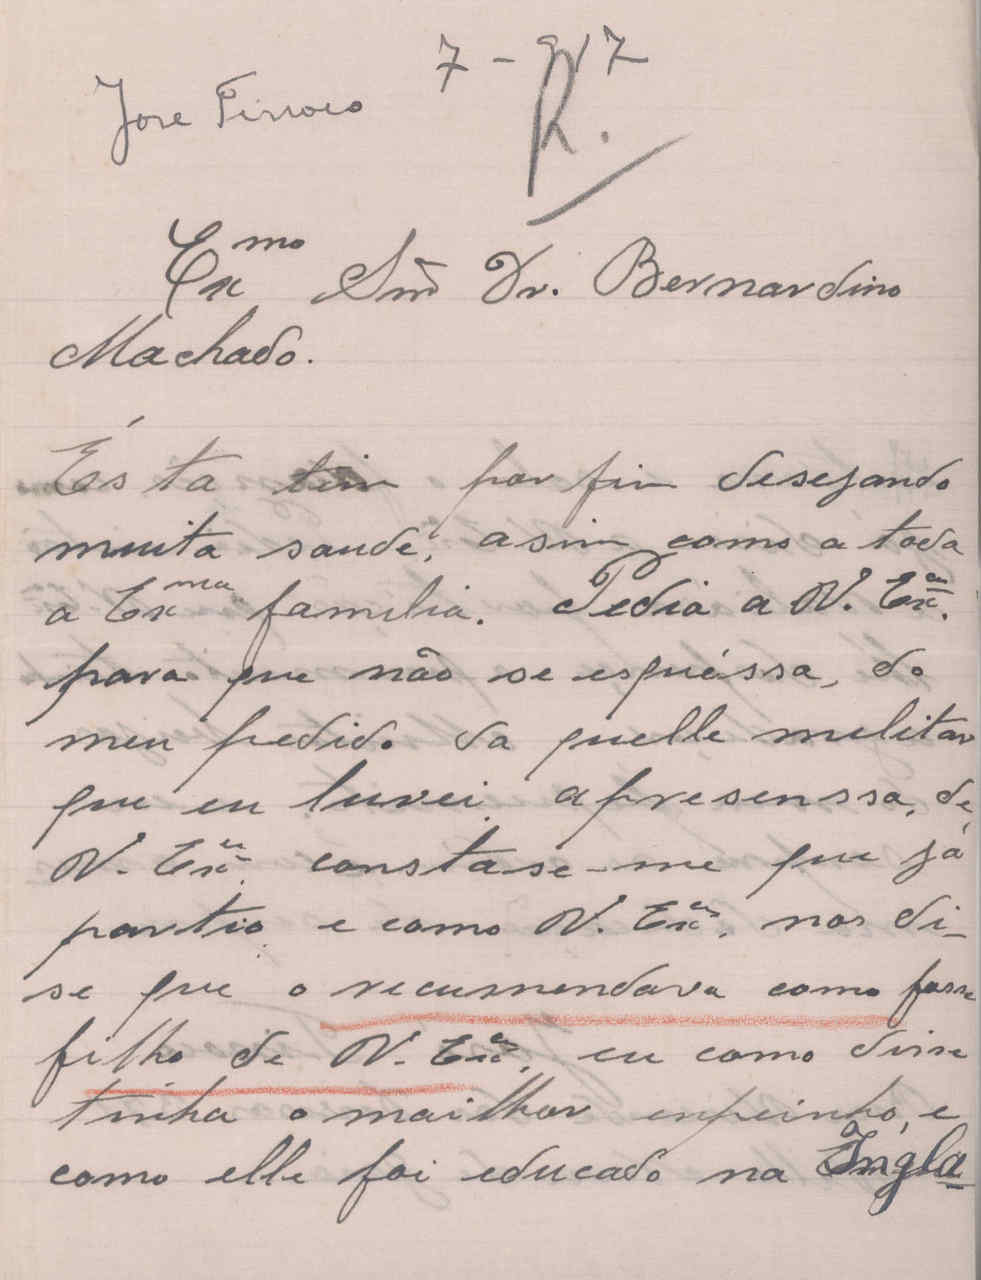 7 - 917
José
R.
Ex.mo Snr̃ Dr. Bernardino
Machado.
Ésta tem por fim desejando
muita saude, asim como a toda
a Exma familia. Pedia a V. Exa.
para que não se esquéssa, do
meu pedido da quelle melitar
que eu luvei apresenssa, de,
V. Exa. constase-me que já
partio e como V. Exa. nos di-
se que o recumendava como fosse
filho de V. Exa, eu como disse
tinha o mailhor enpeinho, e
como elle foi educado na Ingla